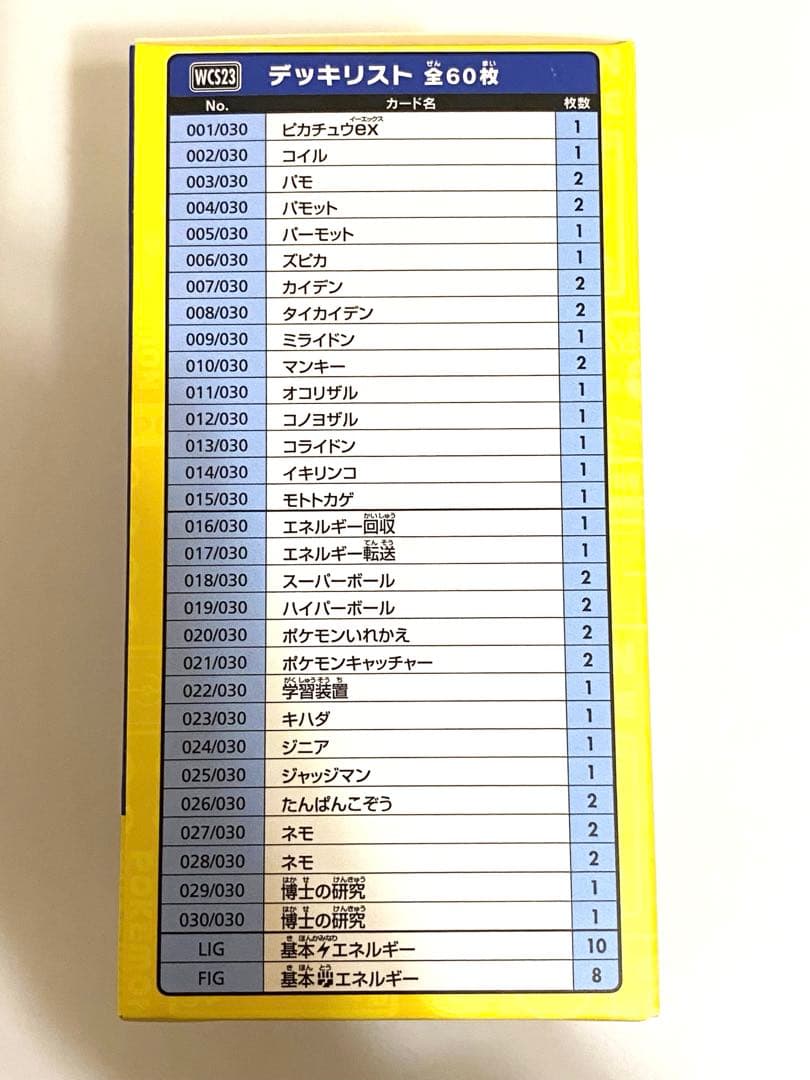 WCS23 デッキリスト 全60枚
No. カード名 枚数
001/030 ピカチュウex 1
002/030 コイル 1
003/030 パモ 2
004/030 パモット 2
005/030 パーモット 1
006/030 ズピカ 1
007/030 カイデン 2
008/030 タイカイデン 2
009/030 ミライドン 1
010/030 マンキー 2
011/030 オコリザル 1
012/030 コノヨザル 1
013/030 コライドン 1
014/030 イキリンコ 1
015/030 モトトカゲ 1
016/030 エネルギー回収 1
017/030 エネルギー転送 1
018/030 スーパーボール 2
019/030 ハイパーボール 2
020/030 ポケモンいれかえ 2
021/030 ポケモンキャッチャー 2
022/030 学習装置 1
023/030 キハダ 1
024/030 ジニア 1
025/030 ジャッジマン 1
026/030 たんぱんこぞう 2
027/030 ネモ 2
028/030 ネモ 2
029/030 博士の研究 1
030/030 博士の研究 1
LIG 基本エネルギー 10
FIG 基本エネルギー 8